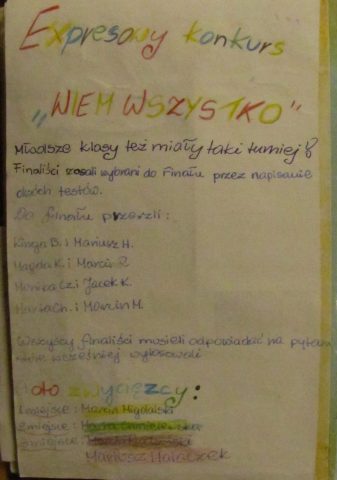 Expresowy konkurs
„WIEM WSZYSTKO”
Młodsze klasy też miały taki turniej!
Finaliści zosali wybrani do finału przez napisanie
dwóch testów.
Do finału przeszli:
Kinga B. i Mariusz H.
Magda K. i Marcin R.
Monika Cz. i Jacek K.
Marta Ch. i Marcin M.
Wszyscy finaliści musieli odpowiadać na pytan
które wcześniej wylosowali
Oto zwycięzcy:
1 miejsce: Marcin Migdalski
2 miejsce: Marta Chmielewska
3 miejsce:
Mariusz